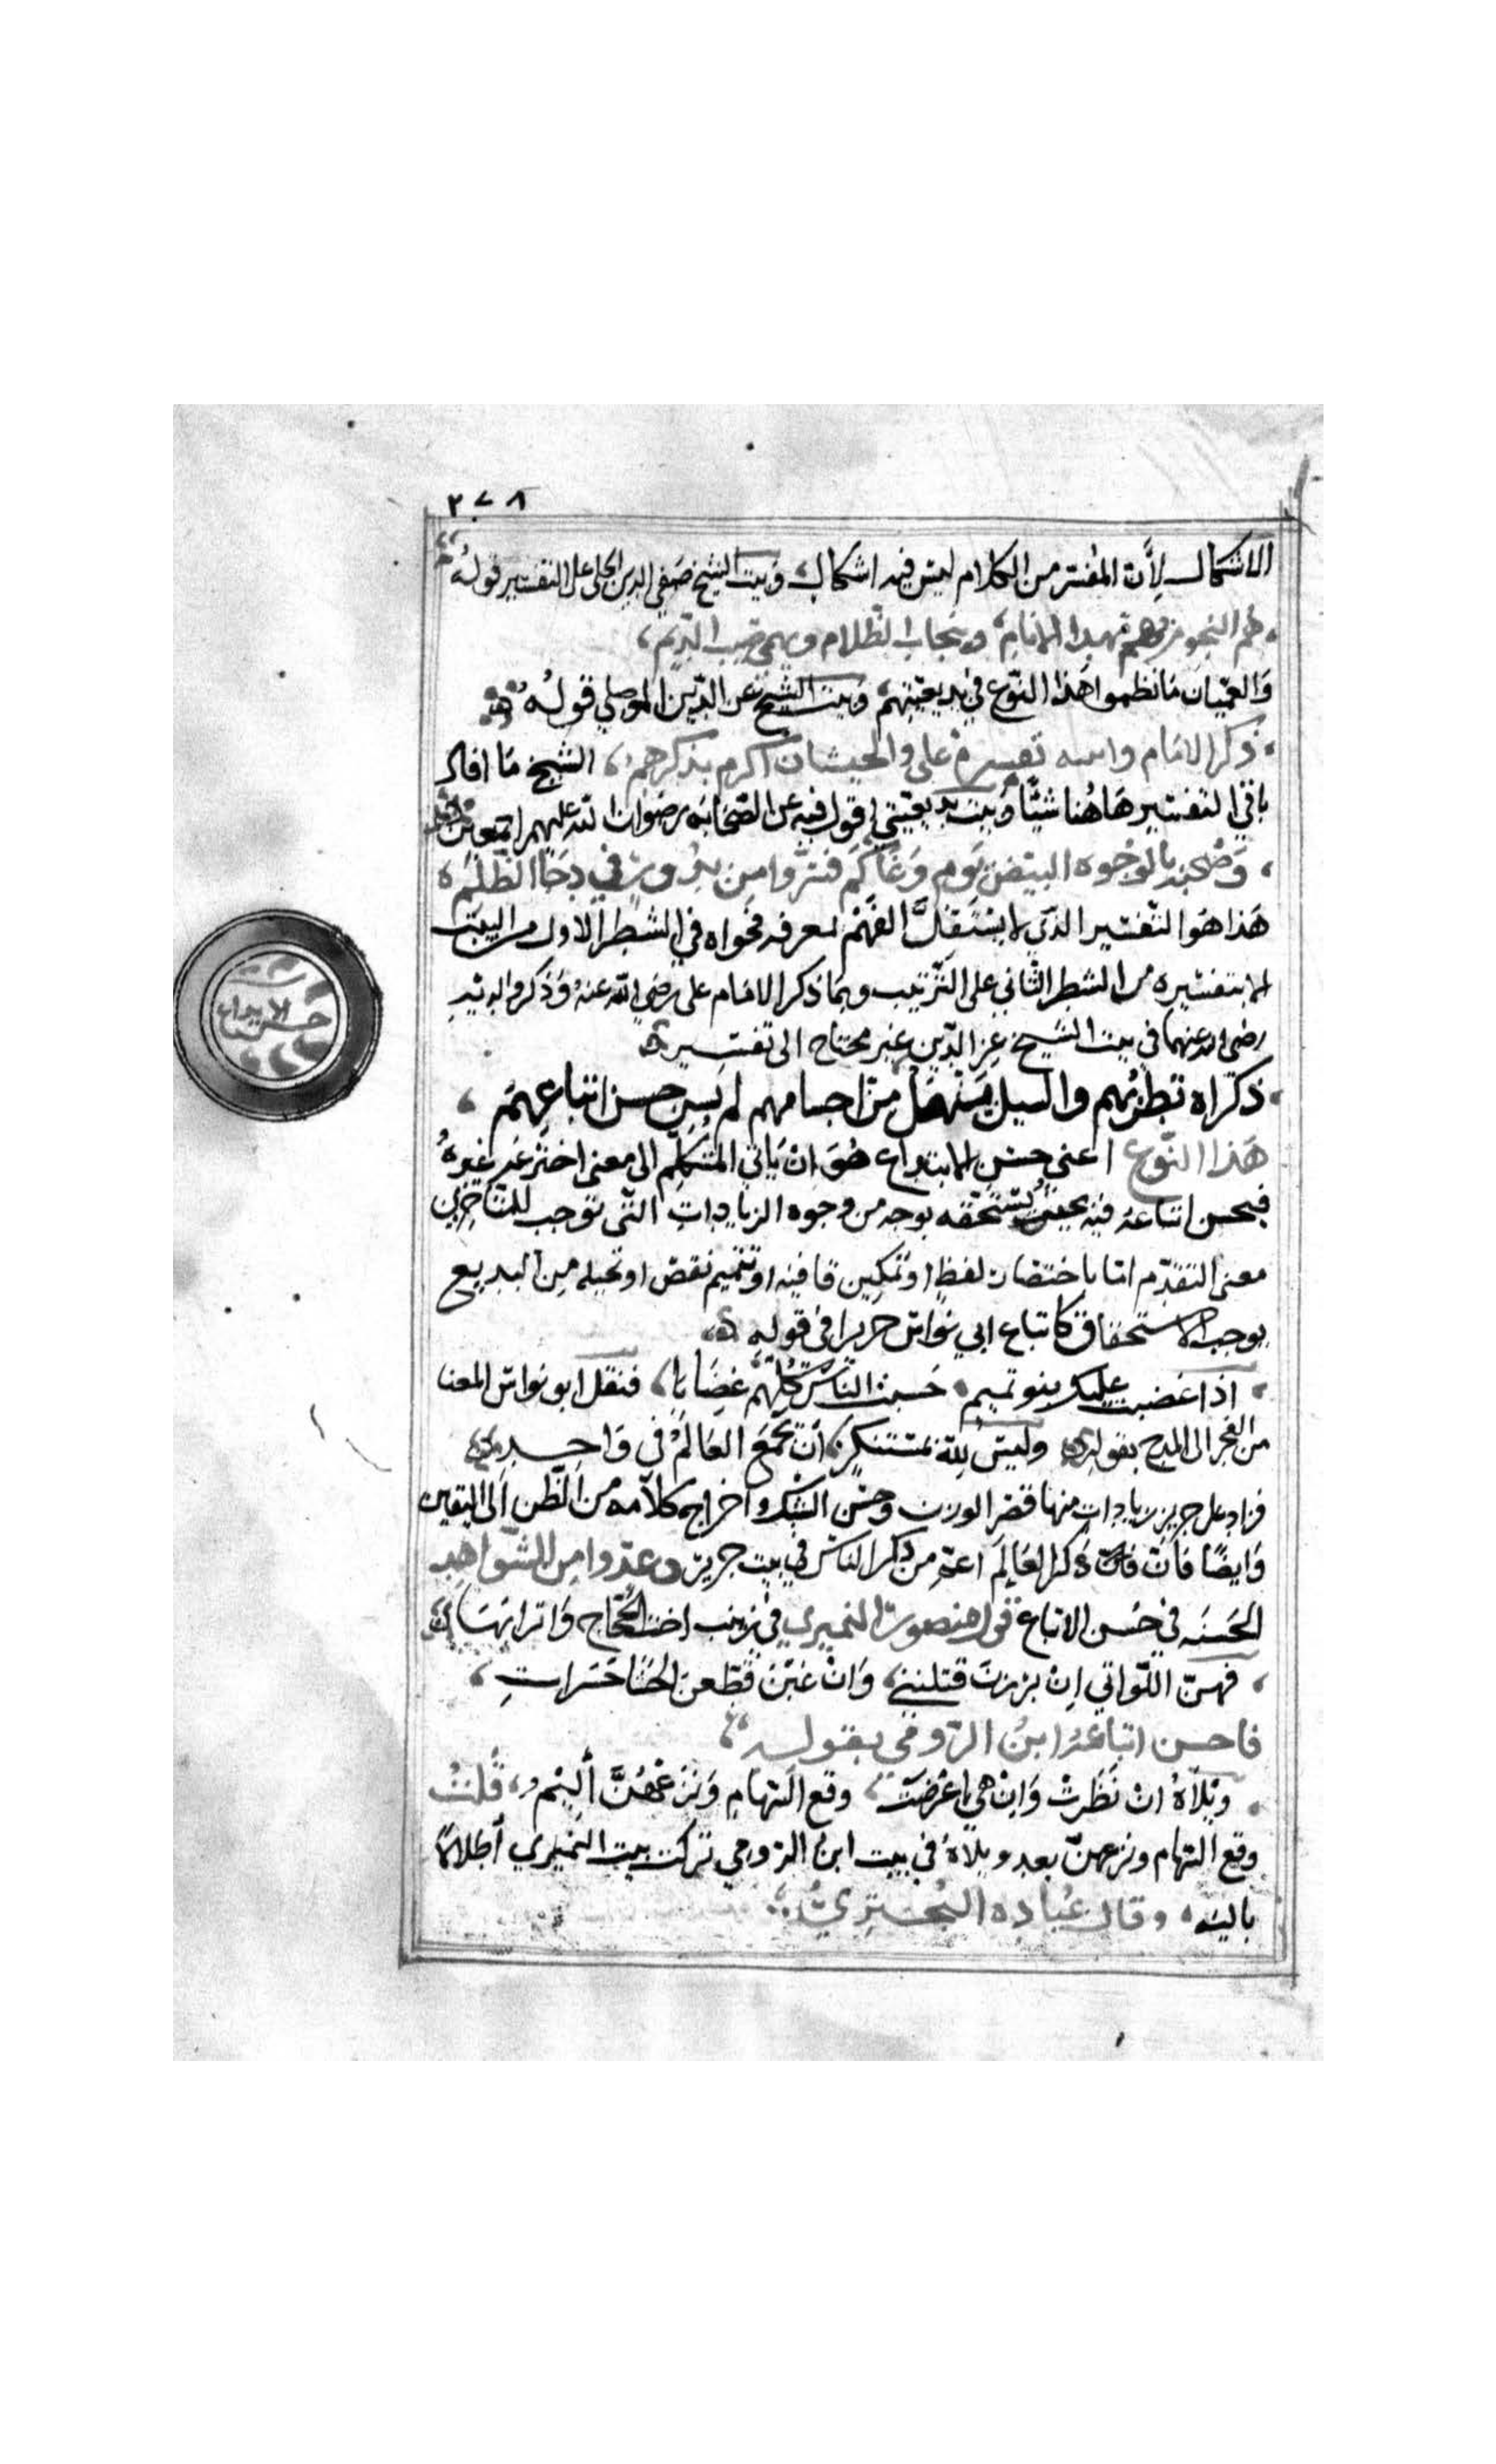 ٢٧٨
الاشكال لأن المفسر من الكلام ليس فيه اشكال وبيت الشيخ صفي الدين الحلي على التفسير قوله
هم النجوم بهم يهدا الانام وينجاب الظلام ويهمي صيب الديم
والعميان ما نظموا هذا النوع في بديعيتهم وبيت الشيخ عز الدين الموصلي قوله
ذكر الامام وابنيه تفسره علي والحسنان اكرم بذكرهم الشيخ ما افاد
باقي التفسير هاهنا شيئا وبيت بديعيتي اقول فيه عن الصحابه رضوان الله عليهم اجمعين
وصحبه بالوجوه البيض يوم وغا كم فسروا من بدور في دجا الظلم
هذا هو التفسير الذي لا يستقل الفهم لمعرفه فحواه في الشطر الاول من البيت
الا بتفسيره من الشطر الثاني على الترتيب وبما ذكر الامام علي رضي الله عنه وذكر ولديه
رضي الله عنهما في بيت الشيخ عز الدين غير محتاج الى تفسير
ذكراه تطربهم والسيل ينهل من اجسامهم لم يشن حسن اتباعهم
هذا النوع اعني حسن الابتداع هو ان ياتي المتكلم الى معنى اخترعه غيره
فيحسن اتباعه فيه بحيث يستحقه بوجه من وجوه الزيادات التي توجب للمتاخرين
معنى التقدم اما باختصار لفظ او تمكين قافيه او تتميم نقص او تحيله من البديع
يوجب الاستحقاق كاتباع ابي نواس جريرا في قوله
اذا غضبت عليك بنو تميم حسبت الناس كلهم غضابا فنقل ابو نواس المعنا
من الفخر الى المدح بقوله وليس لله بمستنكر ان يجمع العالم في واحد
فزاد على جرير زيادات منها قصر الوزن وحسن السبك واخراج كلامه من الظن الى اليقين
وايضا فان ذكر العالم اعم من ذكر الناس في بيت جرير وعدوا من الشواهد
الحسنه في حسن الاتباع قول منصور النميري في زينب اخت الحجاج واترابها
فهن اللواتي ان برزت قتلنني وان غبن قطعن الحشا حسرات
فاحسن اتباعه ابن الرومي بقوله
ويلاه ان نظرت وان هي اعرضت وقع السهام ونزعهن أليم قلت
وقع السهام ونزعهن بعد ويلاه في بيت ابن الرومي تركت بيت النميري أطلالا
باليه وقال عباده البحتري
حسن الابتداع